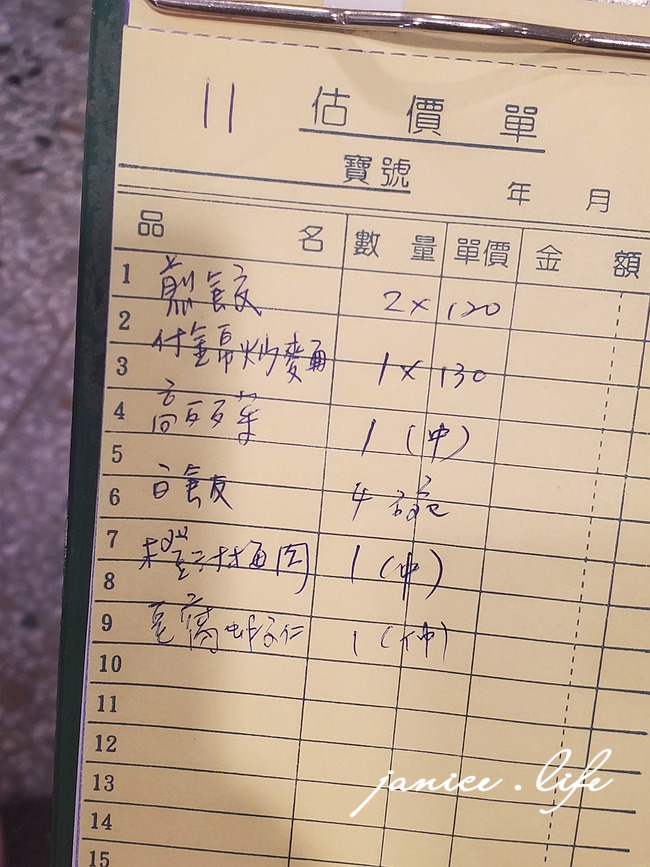 11 估價單
寶號 年 月
品名 數量 單價 金額
1 煎飯 2 × 120
2
3 什錦炒麵 1 × 130
4 高麗菜 1 (中)
5
6 白飯 4 碗
7
8 1 (中)
9 豆腐蚵仁 1 (中)
10
11
12
13
14
15
janice.life